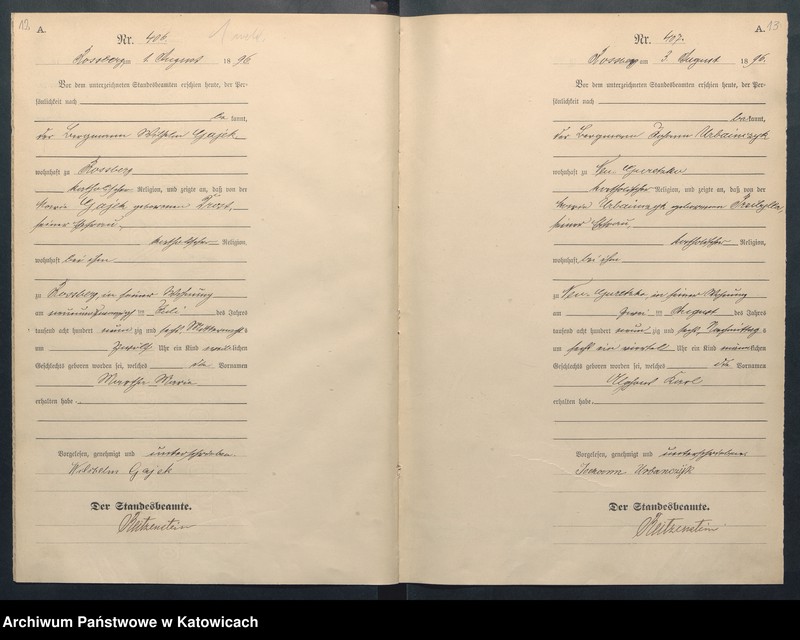 12.
A.
Nr. 406.
Rossberg am 1. August 1896
Vor dem unterzeichneten Standesbeamten erschien heute, der Per-
sönlichkeit nach
bekannt,
der Bergmann Wilhelm Gajek
wohnhaft zu Rossberg
katholischer Religion, und zeigte an, daß von der
Marie Gajek geborenen
seiner Ehefrau
katholischer Religion,
wohnhaft bei ihm
zu Rossberg, in seiner Wohnung
am neunundzwanzigsten Juli des Jahres
tausend acht hundert neunzig und sechs Mitternachts
um zwölf Uhr ein Kind weiblichen
Geschlechts geboren worden sei, welches die Vornamen
Martha Marie
erhalten habe.
Vorgelesen, genehmigt und unterschrieben
Wilhelm Gajek
Der Standesbeamte.
Reitzenstein
A. 13.
Nr. 407.
Rossberg am 3. August 1896.
Vor dem unterzeichneten Standesbeamten erschien heute, der Per-
sönlichkeit nach
bekannt,
der Bergmann Johann Urbainczyk
wohnhaft zu Neu Guretzko
katholischer Religion, und zeigte an, daß von der
Urbainczyk geborenen
seiner Ehefrau
katholischer Religion,
wohnhaft bei ihm
zu Neu Guretzko, in seiner Wohnung
am zwei ten August des Jahres
tausend acht hundert neunzig und sechs, Nachmittags
um sechs ein viertel Uhr ein Kind männlichen
Geschlechts geboren worden sei, welches die Vornamen
Karl
erhalten habe.
Vorgelesen, genehmigt und unterschrieben
Urbanczÿk
Der Standesbeamte.
Reitzenstein
Archiwum Państwowe w Katowicach